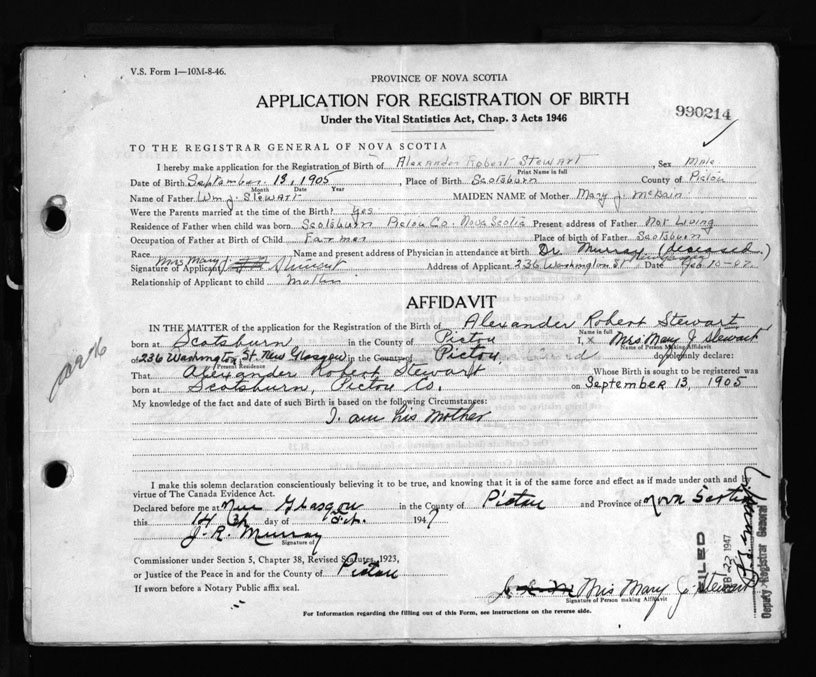 V.S. Form 1—10M-8-46.
PROVINCE OF NOVA SCOTIA
APPLICATION FOR REGISTRATION OF BIRTH
990214
Under the Vital Statistics Act, Chap. 3 Acts 1946
TO THE REGISTRAR GENERAL OF NOVA SCOTIA
I hereby make application for the Registration of Birth of Alexander Robert Stewart, Sex Male
Print Name in full
Date of Birth September 13, 1905, Place of Birth Scotsburn County of Pictou
Month Date Year
Name of Father Wm J. Stewart MAIDEN NAME of Mother Mary J. McBain
Were the Parents married at the time of the Birth? Yes
Residence of Father when child was born Scotsburn Pictou Co. Nova Scotia Present address of Father Not Living
Occupation of Father at Birth of Child Farmer Place of birth of Father Scotsburn
Race Name and present address of Physician in attendance at birth Dr. Murray (deceased)
Signature of Applicant Mrs Mary J. Stewart Address of Applicant 236 Washington St Date Feb 10-47
Relationship of Applicant to child Mother
AFFIDAVIT
IN THE MATTER of the application for the Registration of Birth of Alexander Robert Stewart
Name in full
born at Scotsburn in the County of Pictou I, Mrs Mary J Stewart
Name of Person Making Affidavit
of 236 Washington St. New Glasgow in the County of Pictou, do solemnly declare:
Present Residence
That Alexander Robert Stewart Whose Birth is sought to be registered was
born at Scotsburn, Pictou Co. on September 13, 1905
My knowledge of the fact and date of such Birth is based on the following Circumstances:
I am his Mother
I make this solemn declaration conscientiously believing it to be true, and knowing that it is of the same force and effect as if made under oath and in
virtue of The Canada Evidence Act.
Declared before me at New Glasgow in the County of Pictou and Province of Nova Scotia
this 14th day of Feb. 1947
J. R. Murray
Signature of
Commissioner under Section 5, Chapter 38, Revised Statutes, 1923,
or Justice of the Peace in and for the County of Pictou
If sworn before a Notary Public affix seal.
Mrs Mary J. Stewart
Signature of Person making Affidavit
For Information regarding the filling out of this Form, see instructions on the reverse side.
FILED
FEB 22 1947
Deputy Registrar General